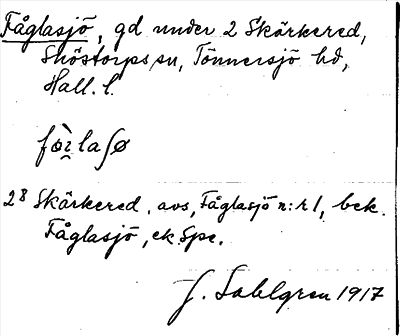 Fåglasjö, gd under 2 Skärkered,
Snöstorps sn, Tönnersjö hd,
Hall. l.
2⁸ Skärkered, avs, Fåglasjö n:r 1, bek.
Fåglasjö, ek Spe.
J. Sahlgren 1917